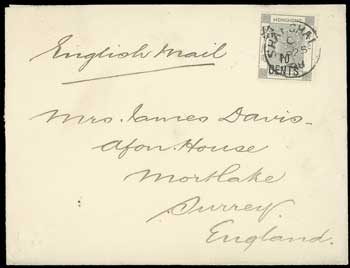 HONGKONG
SHANGHAI
10
CENTS
English Mail
Mrs. James Davis-
Afon House
Mortlake
Surrey
England.